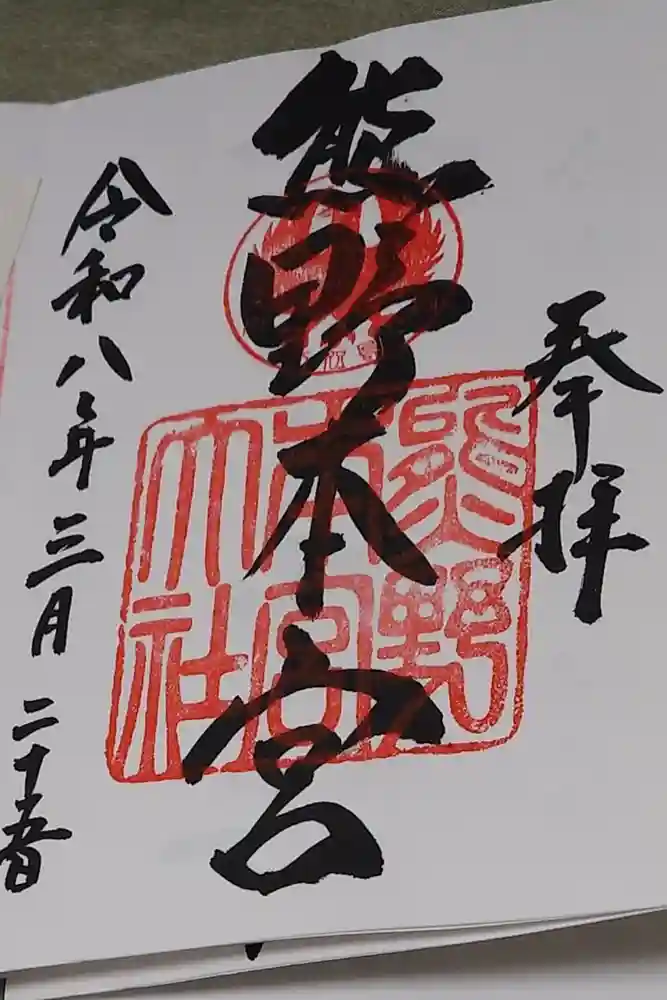 奉拝
熊野本宮
熊野本宮大社
令和八年三月二十五日